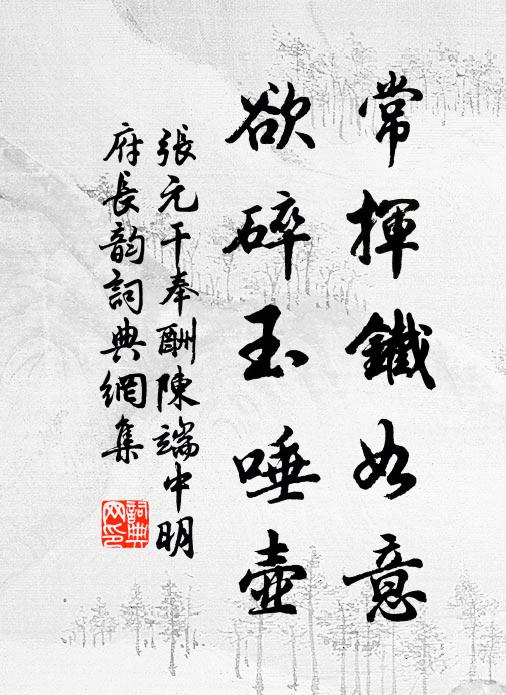 常揮鐵如意
欲碎玉唾壺
張元干奉酬陳端中明
府長韵詞典網集
詞典网印